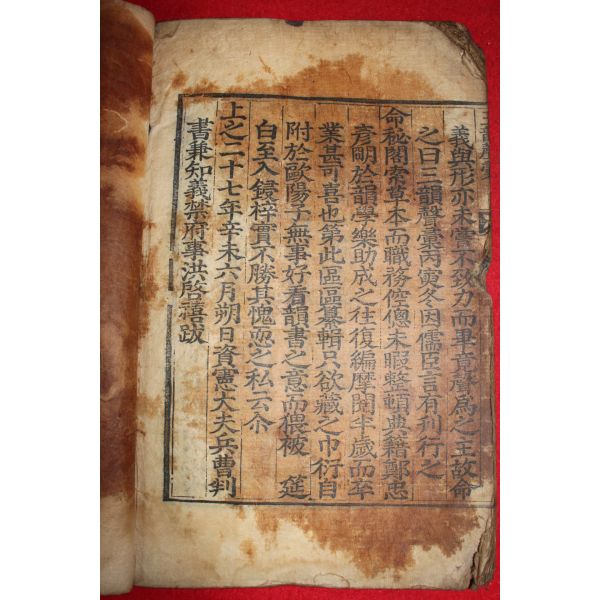 義與形亦未嘗不致力而畢竟聲爲之主故命
之曰三韻聲彙丙寅冬因儒臣言有刋行之
命秘閣索草本而職務倥傯未暇整頓典籍鄭忠
彦嗣於韻學樂助成之往復編摩閱半歲而卒
業甚可喜也第此區區纂輯只欲藏之巾衍自
附於歐陽子無事好看韻書之意而猥被 筵
白至入鋟梓實不勝其愧恧之私云尒
上之二十七年辛未六月朔日資憲大夫兵曹判
書兼知義禁府事洪啓禧跋
三韻聲彙